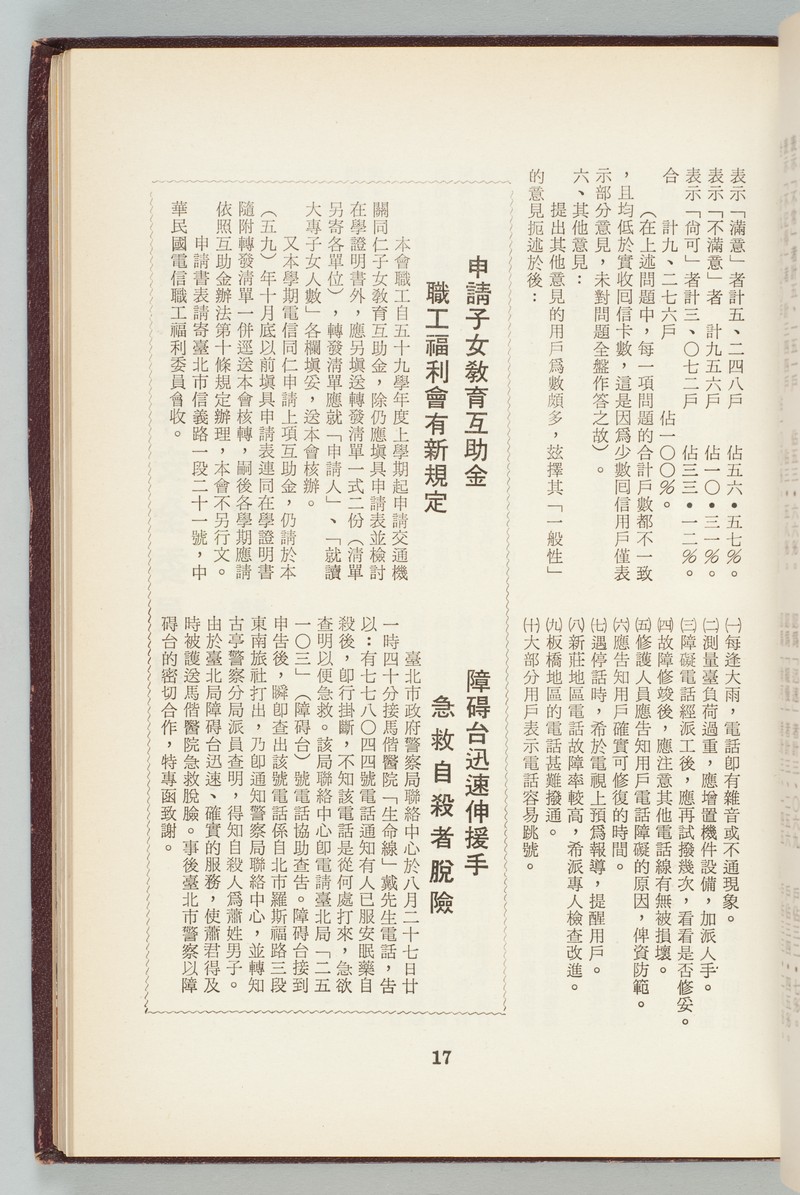 表示「滿意」者計五、二四八戶　佔五六•五七％。
表示「不滿意」者　計九五六戶　佔一〇•三一％。
表示「尙可」者計三、〇七二戶　佔三三•一二％。
合　計九、二七六戶　佔一〇〇％。
（在上述問題中，每一項問題的合計戶數都不一致
，且均低於實收囘信卡數，這是因爲少數囘信用戶僅表
示部分意見，未對問題全盤作答之故）。
六、其他意見：
提出其他意見的用戶爲數頗多，玆擇其「一般性」
的意見扼述於後：
㈠每逢大雨，電話卽有雜音或不通現象。
㈡測量臺負荷過重，應增置機件設備，加派人手。
㈢障礙電話經派工後，應再試撥幾次，看看是否修妥。
㈣故障修竣後，應注意其他電話線有無被損壞。
㈤修護人員應告知用戶電話障礙的原因，俾資防範。
㈥應告知用戶確實可修復的時間。
㈦遇停話時，希於電視上預爲報導，提醒用戶。
㈧新莊地區電話故障率較高，希派專人檢查改進。
㈨板橋地區的電話甚難撥通。
㈩大部分用戶表示電話容易跳號。
申請子女敎育互助金
職工福利會有新規定
本會職工自五十九學年度上學期起申請交通機
關同仁子女敎育互助金，除仍應塡具申請表並檢討
在學證明書外，應另塡送轉發淸單一式二份（淸單
另寄各單位），轉發淸單應就「申請人」、「就讀
大專子女人數」各欄塡妥，送本會核辦。
又本學期電信同仁申請上項互助金，仍請於本
（五九）年十月底以前塡具申請表連同在學證明書
隨附轉發淸單一併逕送本會核轉，嗣後各學期應請
依照互助金辦法第十條規定辦理，本會不另行文。
申請書表請寄臺北市信義路一段二十一號，中
華民國電信職工福利委員會收。
障碍台迅速伸援手
急救自殺者脫險
臺北市政府警察局聯絡中心於八月二十七日廿
一時四十分接馬偕醫院「生命線」戴先生電話，告
以：有七七八〇四四號電話通知有人已服安眠藥自
殺後，卽行掛斷，不知該電話是從何處打來，急欲
查明以便急救。該局聯絡中心卽電請臺北局「二五
一〇三」（障碍台）號電話協助查告。障碍台接到
申告後，瞬卽查出該號電話係自北市羅斯福路三段
東南旅社打出，乃卽通知警察局聯絡中心，並轉知
古亭警察分局派員查明，得知自殺人爲蕭姓男子。
由於臺北局障碍台迅速、確實的服務，使蕭君得及
時被護送馬偕醫院急救脫險。事後臺北市警察以障
碍台的密切合作，特專函致謝。
17